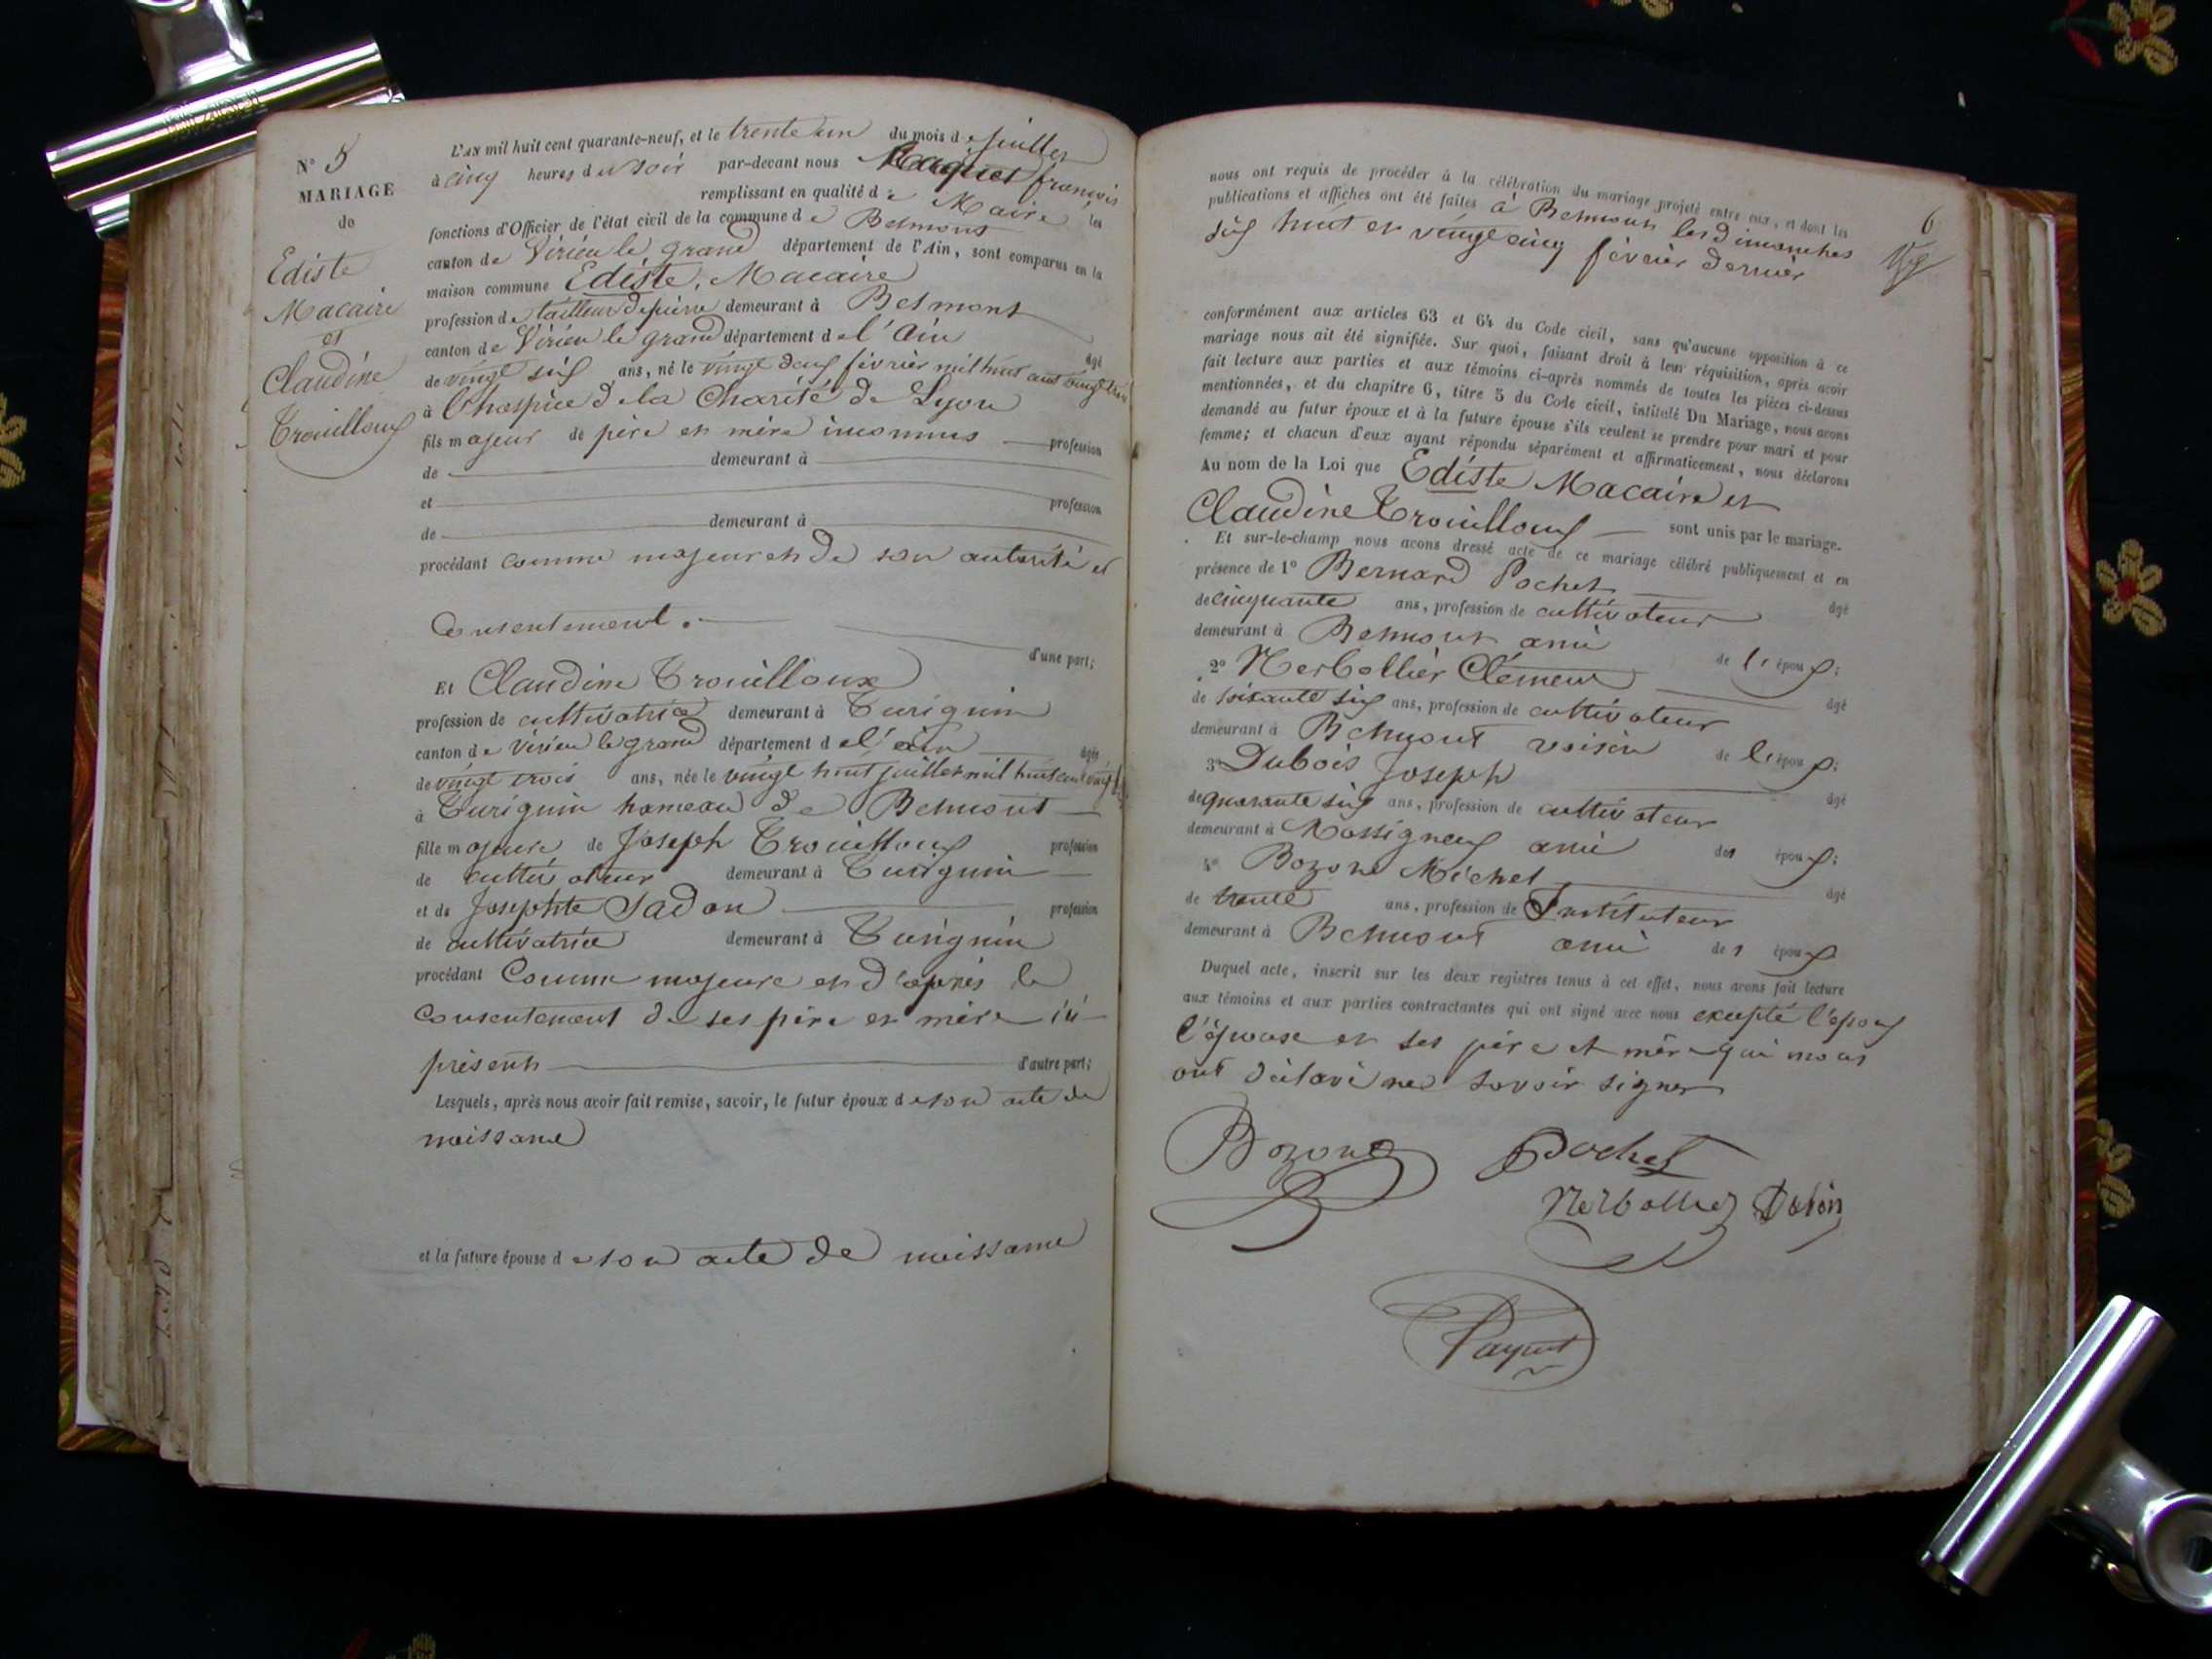 N° 5
MARIAGE
de
Ediste
Macaire
et
Claudine
Trouilloux
L'AN mil huit cent quarante-neuf, et le trente un du mois de juillet
à cinq heures du soir par-devant nous françois
remplissant en qualité de Maire les
fonctions d'Officier de l'état civil de la commune de Belmont
canton de Virieu le grand département de l'Ain, sont comparus en la
maison commune Ediste, Macaire
profession de tailleur de pierre demeurant à Belmont
canton de Virieu le grand département de l'Ain
agé
de vingt six ans, né le vingt deux février mil huit cent vingt trois
à l'hospice de la Charité de Lyon
fils majeur de père et mère inconnus profession
de demeurant à
et profession
de demeurant à
procédant comme majeur et de son autorité et
Consentement.
d'une part;
Et Claudine Trouilloux
profession de cultivatrice demeurant à Turignin
canton de Virieu le grand département de l'ain agée
de vingt trois ans, née le vingt huit juillet mil huit cent vingt
à Turignin hameau de Belmont
fille majeure de Joseph Trouilloux profession
de cultivateur demeurant à Turignin
et de Josephte Sadon profession
de cultivatrice demeurant à Turignin
procédant Comme majeure et d'après le
Consentement de ses père et mère ici
présents d'autre part;
Lesquels, après nous avoir fait remise, savoir, le futur époux de son acte de
naissance
et la future épouse de son acte de naissance
6
nous ont requis de procéder à la célébration du mariage projeté entre eux, et dont les
publications et affiches ont été faites à Belmont les dimanches
dix huit et vingt cinq février dernier
conformément aux articles 63 et 64 du Code civil, sans qu'aucune opposition à ce
mariage nous ait été signifiée. Sur quoi, faisant droit à leur réquisition, après avoir
fait lecture aux parties et aux témoins ci-après nommés de toutes les pièces ci-dessus
mentionnées, et du chapitre 6, titre 5 du Code civil, intitulé Du Mariage, nous avons
demandé au futur époux et à la future épouse s'ils veulent se prendre pour mari et pour
femme; et chacun d'eux ayant répondu séparément et affirmativement, nous déclarons
Au nom de la Loi que Ediste Macaire et
Claudine Trouilloux sont unis par le mariage.
Et sur-le-champ nous avons dressé acte de ce mariage célébré publiquement et en
présence de 1° Bernard Pochet agé
de cinquante ans, profession de cultivateur
demeurant à Belmont ami de l'époux;
2° Nerbollier Clément agé
de soixante six ans, profession de cultivateur
demeurant à Belmont voisin de l'époux;
3° Dubois Joseph agé
de quarante six ans, profession de cultivateur
demeurant à Massignieux ami des époux;
4° Bozone Michel agé
de trente ans, profession de Instituteur
demeurant à Belmont ami des époux
Duquel acte, inscrit sur les deux registres tenus à cet effet, nous avons fait lecture
aux témoins et aux parties contractantes qui ont signé avec nous excepté l'époux
l'épouse et ses père et mère qui nous
ont déclaré ne savoir signer
Bozone Pochet
Nerbollier